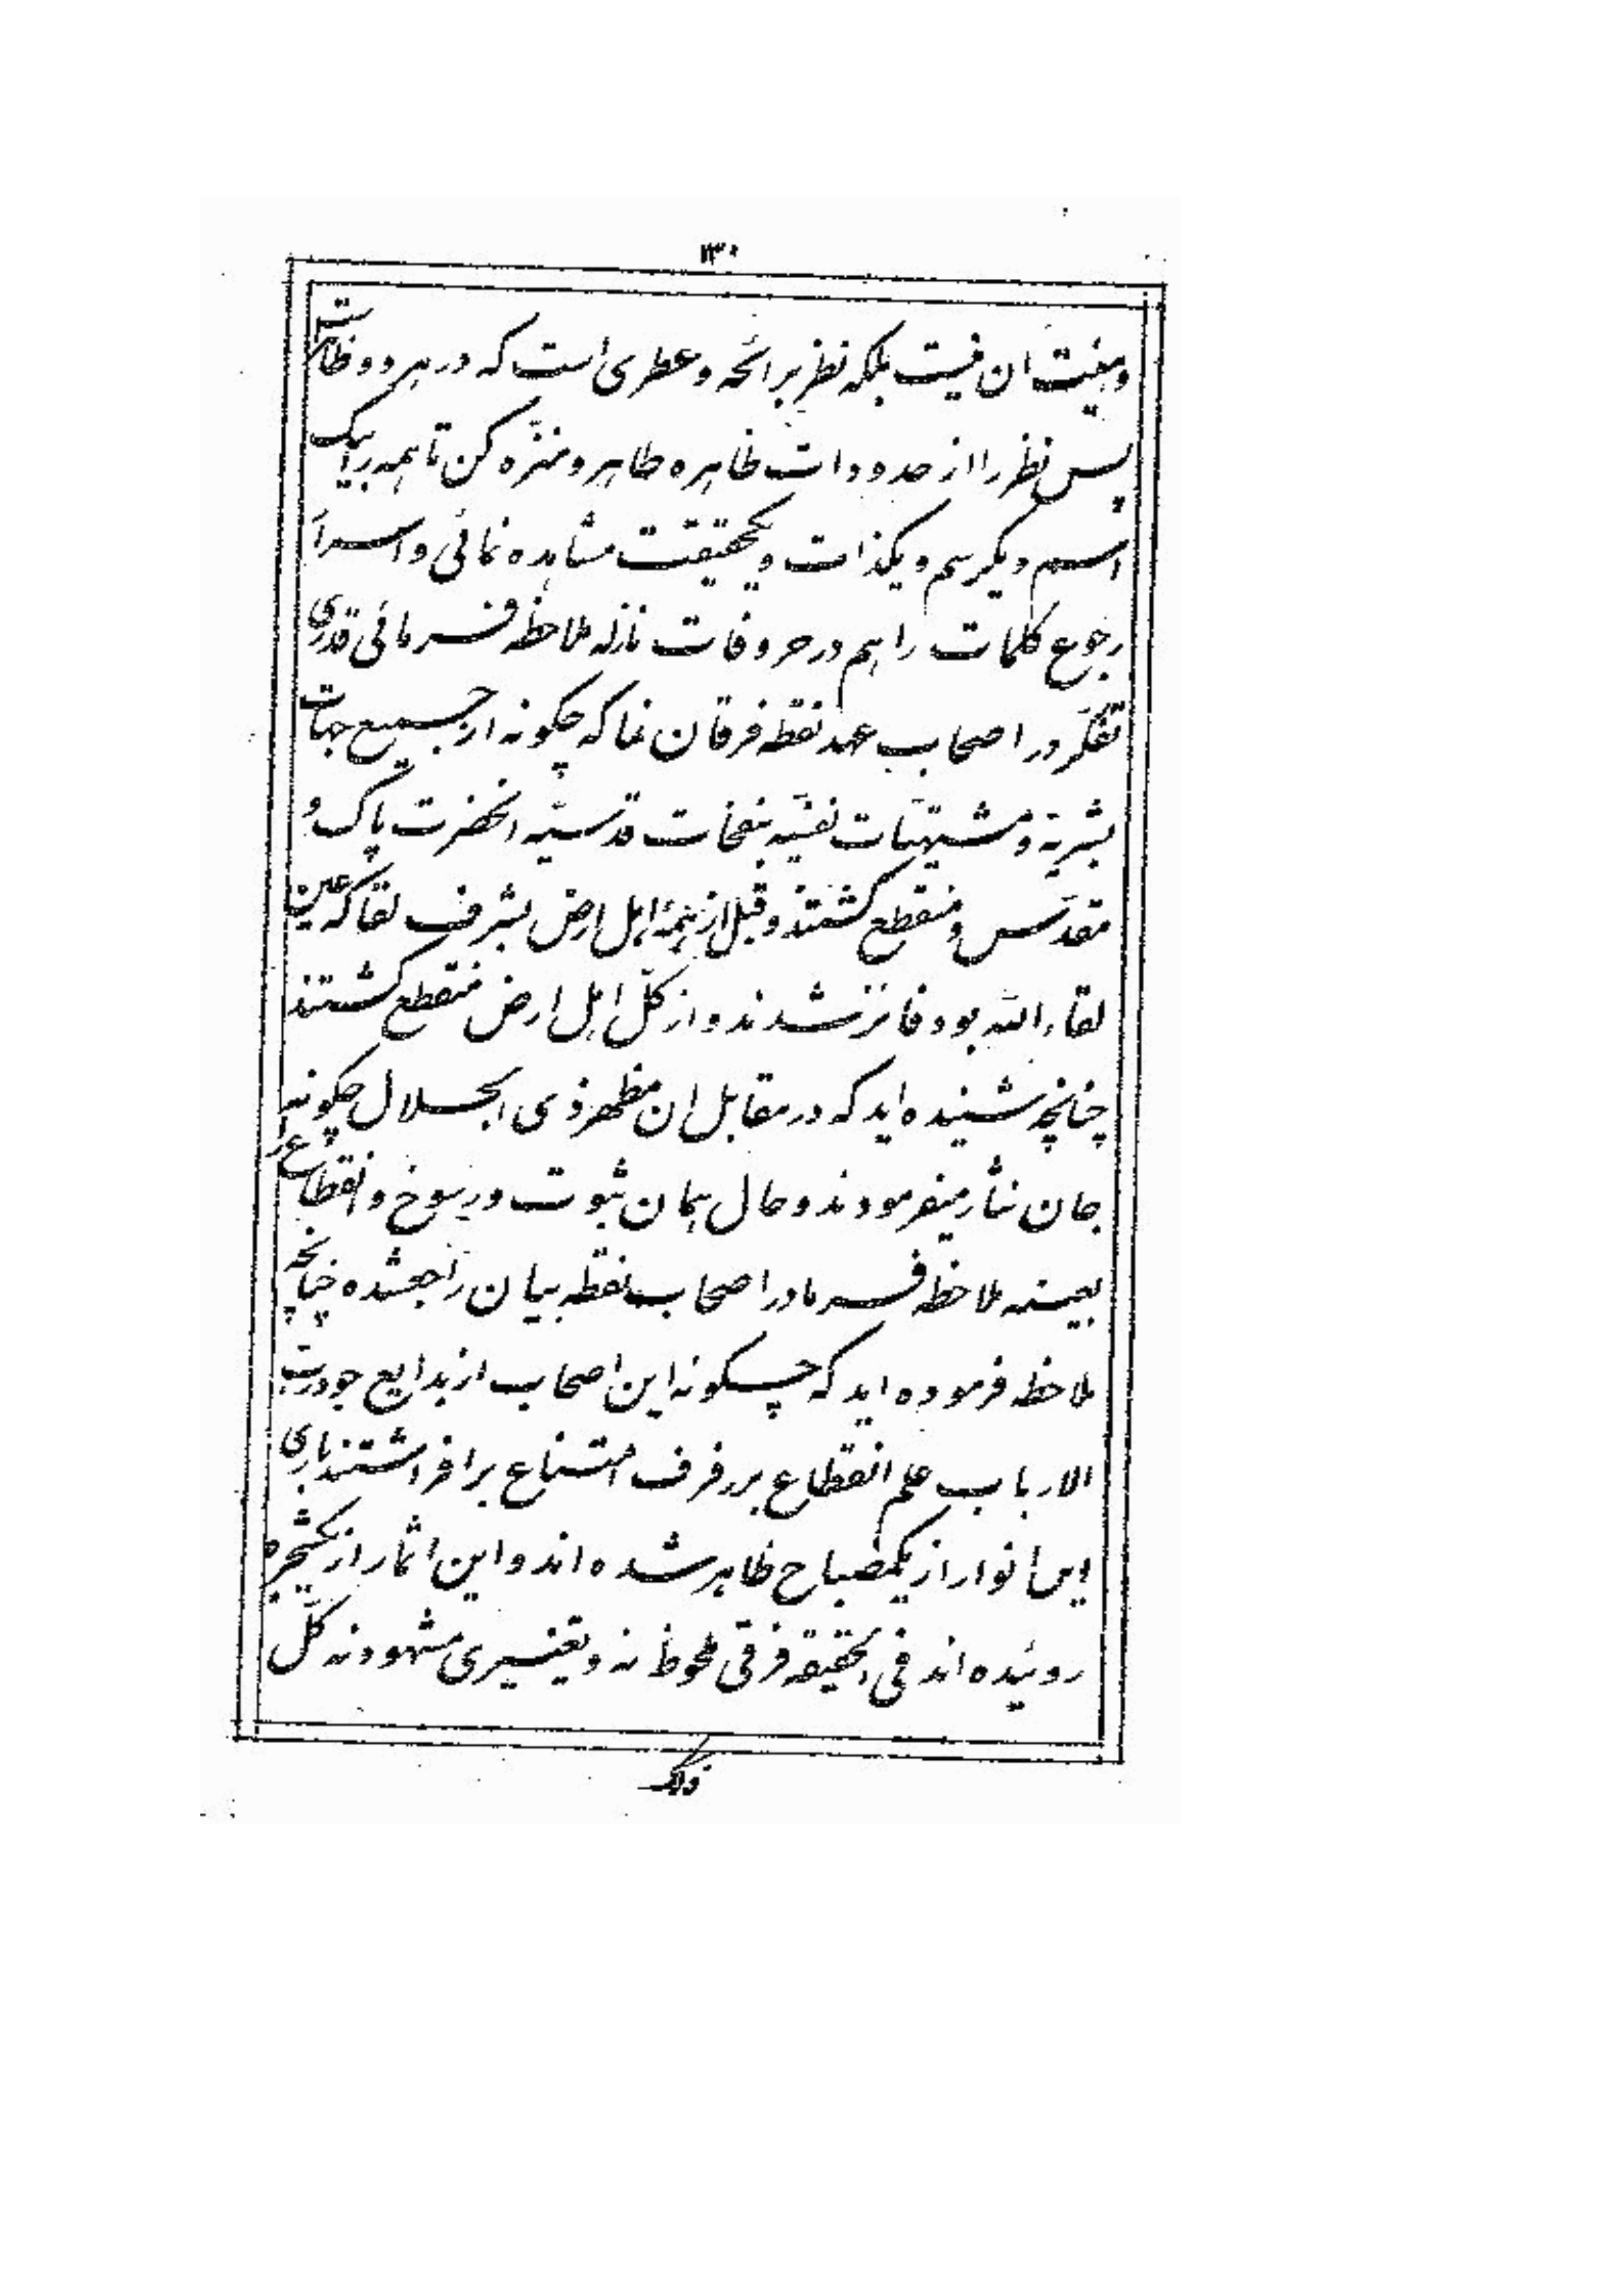 ۱۳۰
و هیئت ان نیست بلکه نظر برائحه و عطری است که در هر دو ظاهر است
پس نظر را از حدودات ظاهره طاهر و منزه کن تا همه را بیک
اسم و یکرسم و یکذات و یحقیقت مشاهده نمائی و اسرار
رجوع کلمات را هم در حروفات نازله ملاحظه فرمائی قدری
تفکّر در اصحاب عهد نقطه فرقان نما که چکونه از جمیع جهات
بشریّه و مشتهیّات نفسیّه بنفحات قدسیّه انحضرت پاک و
مقدّس و منقطع کشتند و قبل از همهٔ اهل ارض بشرف لقا که عین
لقاء اللّه بود فائز شدند و از کلّ اهل ارض منقطع کشتند
چنانچه شنیده اید که در مقابل ان مظهر ذی الجلال چکونه
جان نثار میفرمودند و حال همان ثبوت و رسوخ و انقطاع را
بعینه ملاحظه فرما در اصحاب نقطه بیان راجعشده چنانچه
ملاحظه فرموده اید که چکونه این اصحاب از بدایع جود ربّ
الارباب علم انقطاع بر رفرف امتناع برافراشتند باری
این انوار از یکمصباح ظاهر شده اند و این اثمار از یکشجره
روئیده اند فی الحقیقه فرقی ملحوظ نه و تغییری مشهود نه کلّ
ذلک